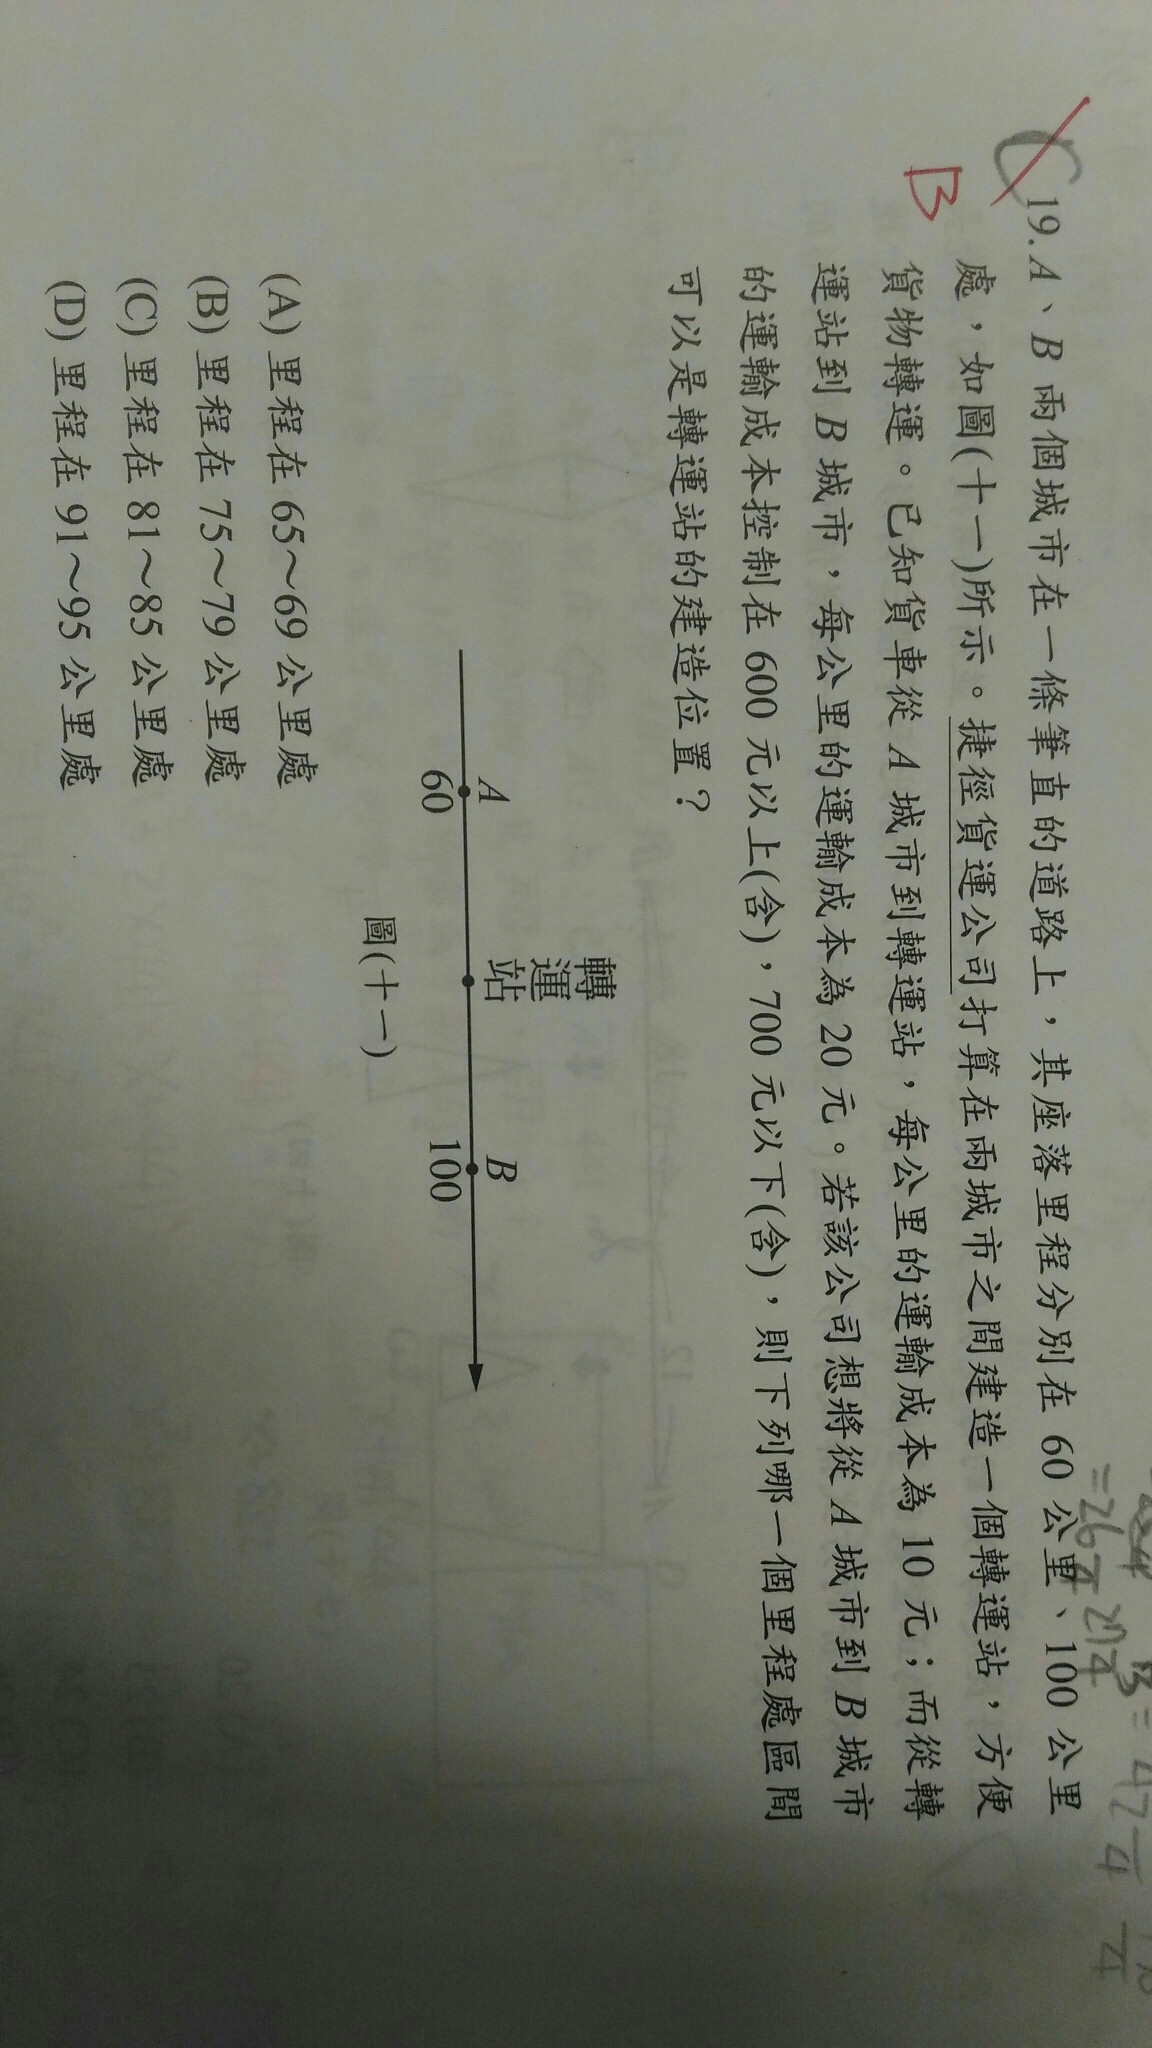 C
B
19. A、B 兩個城市在一條筆直的道路上，其座落里程分別在 60 公里、100 公里
處，如圖(十一)所示。捷徑貨運公司打算在兩城市之間建造一個轉運站，方便
貨物轉運。已知貨車從 A 城市到轉運站，每公里的運輸成本為 10 元；而從轉
運站到 B 城市，每公里的運輸成本為 20 元。若該公司想將從 A 城市到 B 城市
的運輸成本控制在 600 元以上(含)，700 元以下(含)，則下列哪一個里程處區間
可以是轉運站的建造位置？
轉運站
A
B
60
100
圖(十一)
(A) 里程在 65～69 公里處
(B) 里程在 75～79 公里處
(C) 里程在 81～85 公里處
(D) 里程在 91～95 公里處